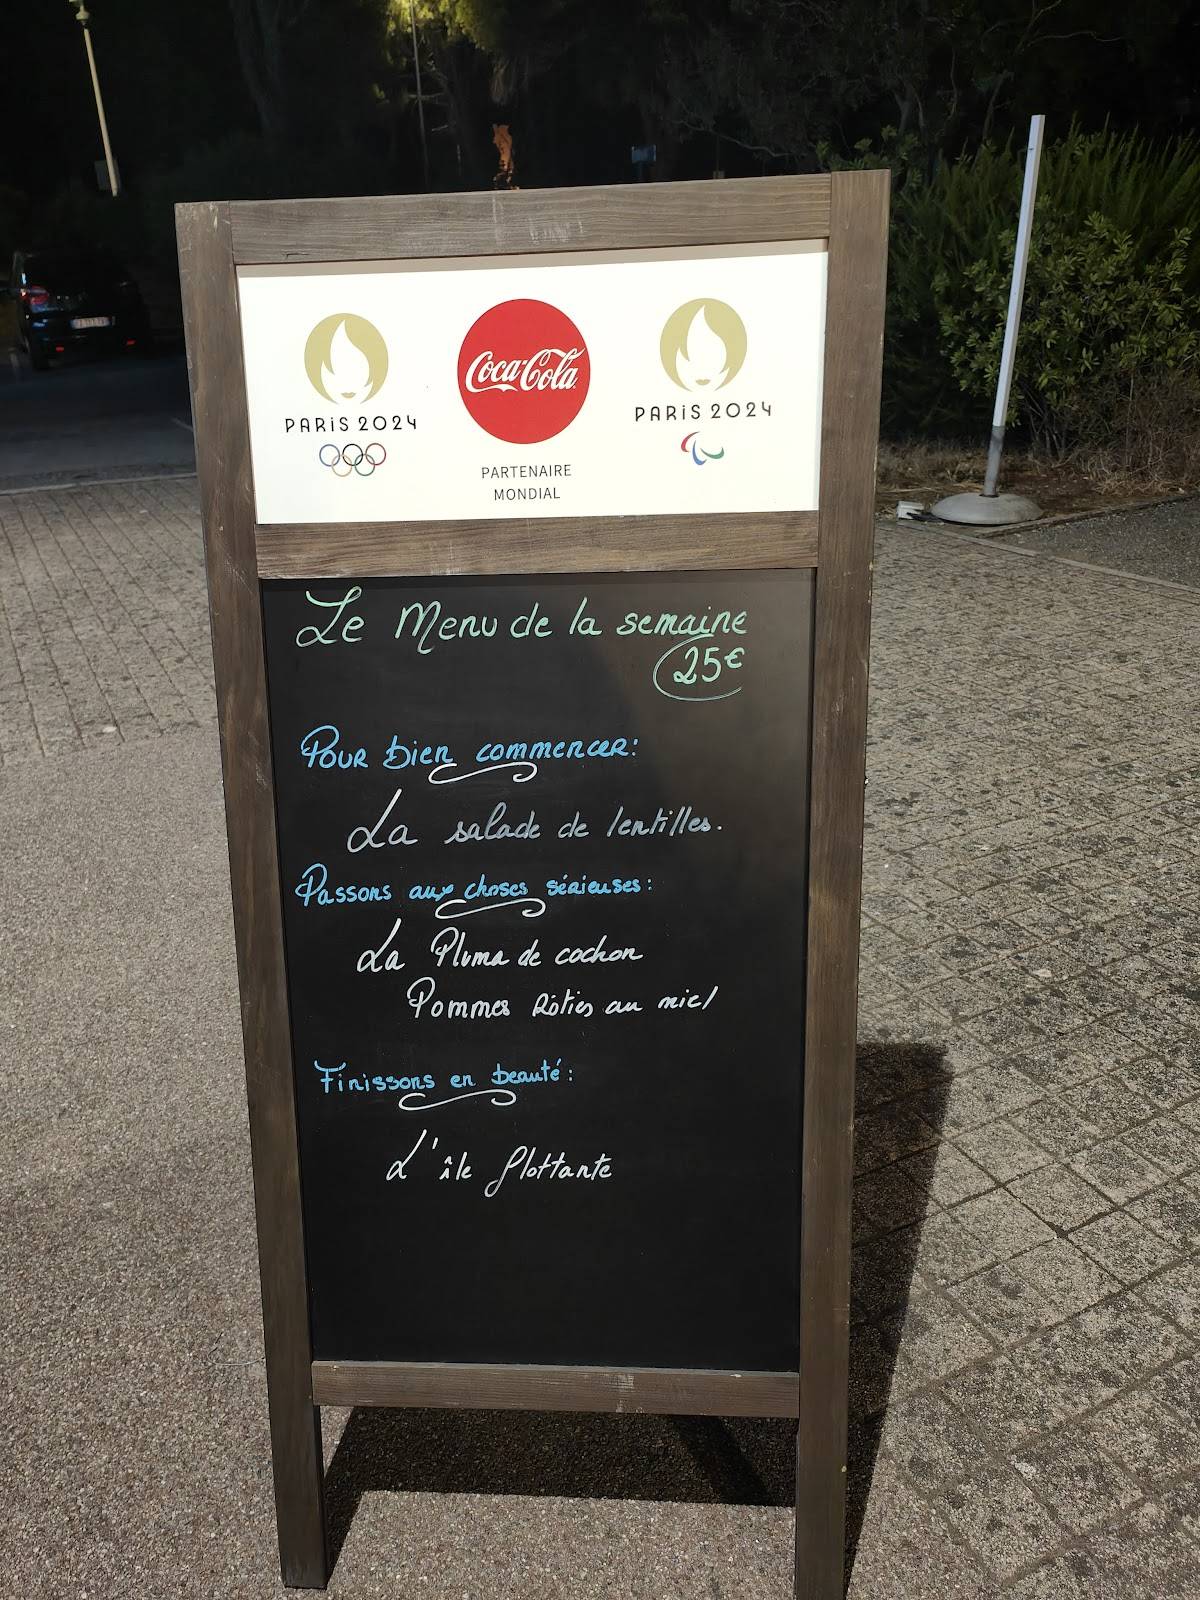 PARIS 2024
Coca-Cola
PARTENAIRE
MONDIAL
PARIS 2024
Le Menu de la semaine
25€
Pour bien commencer:
La salade de lentilles.
Passons aux choses sérieuses:
La Pluma de cochon
Pommes Rôties au miel
Finissons en beauté:
L'île flottante